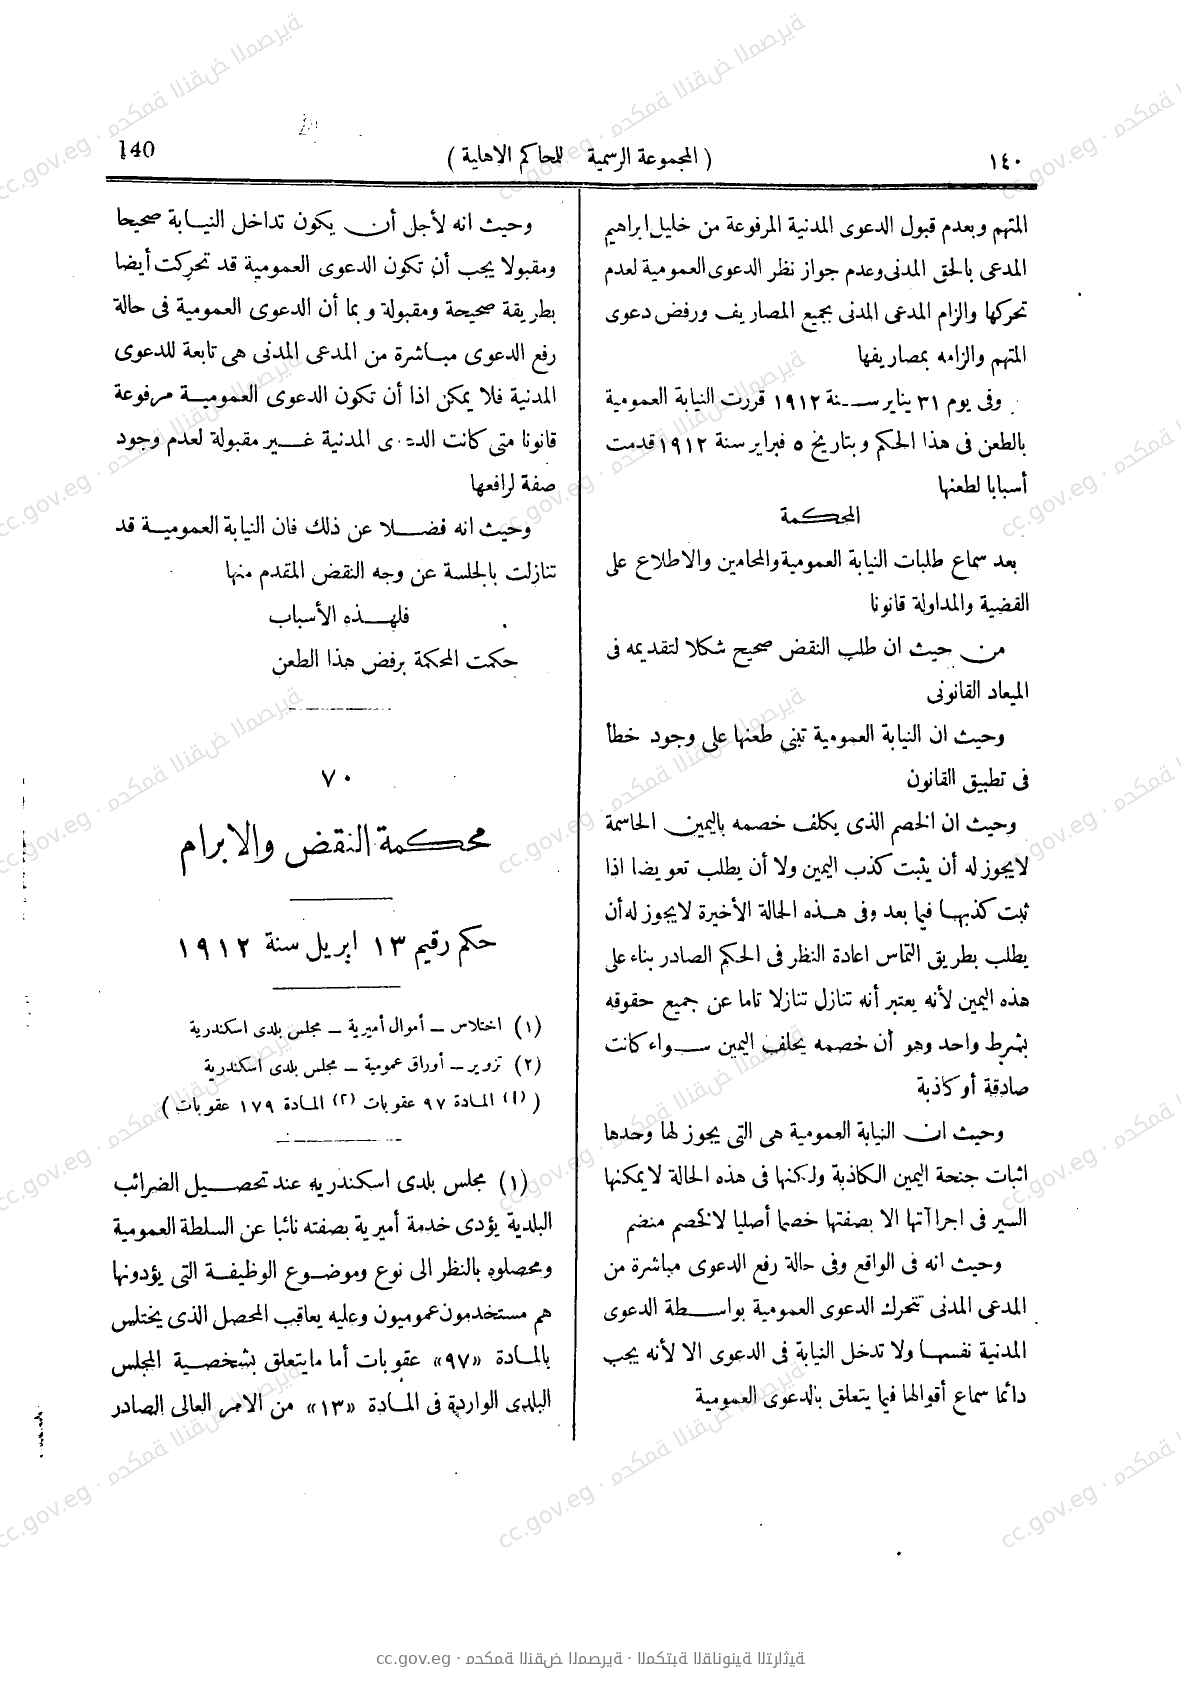 ١٤٠ ( المجموعة الرسمية للحاكم الاهلية ) 140
المتهم وبعدم قبول الدعوى المدنية المرفوعة من خليل ابراهيم
المدعى بالحق المدنى وعدم جواز نظر الدعوى العمومية لعدم
تحركها والزام المدعى المدنى بجميع المصاريف ورفض دعوى
المتهم والزامه بمصاريفها
وفى يوم ٣١ يناير سنة ١٩١٢ قررت النيابة العمومية
بالطعن فى هذا الحكم وبتاريخ ٥ فبراير سنة ١٩١٢ قدمت
أسبابا لطعنها
المحكمة
بعد سماع طلبات النيابة العمومية والمحامين والاطلاع على
القضية والمداولة قانونا
من حيث ان طلب النقض صحيح شكلا لتقديمه فى
الميعاد القانونى
وحيث ان النيابة العمومية تبنى طعنها على وجود خطأ
فى تطبيق القانون
وحيث ان الخصم الذى يكلف خصمه باليمين الحاسمة
لايجوز له أن يثبت كذب اليمين ولا أن يطلب تعويضا اذا
ثبت كذبها فيما بعد وفى هذه الحالة الأخيرة لايجوز له أن
يطلب بطريق التماس اعادة النظر فى الحكم الصادر بناء على
هذه اليمين لأنه يعتبر أنه تنازل تنازلا تاما عن جميع حقوقه
بشرط واحد وهو أن خصمه يحلف اليمين سواء كانت
صادقة أو كاذبة
وحيث ان النيابة العمومية هى التى يجوز لها وحدها
اثبات جنحة اليمين الكاذبة ولكنها فى هذه الحالة لايمكنها
السير فى اجراآتها الا بصفتها خصما أصليا لاكخصم منضم
وحيث انه فى الواقع وفى حالة رفع الدعوى مباشرة من
المدعى المدنى تتحرك الدعوى العمومية بواسطة الدعوى
المدنية نفسها ولا تدخل النيابة فى الدعوى الا لأنه يجب
دائما سماع أقوالها فيما يتعلق بالدعوى العمومية
وحيث انه لأجل أن يكون تداخل النيابة صحيحا
ومقبولا يجب أن تكون الدعوى العمومية قد تحركت أيضا
بطريقة صحيحة ومقبولة وبما أن الدعوى العمومية فى حالة
رفع الدعوى مباشرة من المدعى المدنى هى تابعة للدعوى
المدنية فلا يمكن اذا أن تكون الدعوى العمومية مرفوعة
قانونا متى كانت الدعوى المدنية غير مقبولة لعدم وجود
صفة لرافعها
وحيث انه فضلا عن ذلك فان النيابة العمومية قد
تنازلت بالجلسة عن وجه النقض المقدم منها
فلهذه الأسباب
حكمت المحكمة برفض هذا الطعن
٧٠
محكمة النقض والابرام
حكم رقيم ١٣ ابريل سنة ١٩١٢
(١) اختلاس – أموال أميرية – مجلس بلدى اسكندرية
(٢) تزوير – أوراق عمومية – مجلس بلدى اسكندرية
( (١) المادة ٩٧ عقوبات (٢) المادة ١٧٩ عقوبات )
(١) مجلس بلدى اسكندريه عند تحصيل الضرائب
البلدية يؤدى خدمة أميرية بصفته نائبا عن السلطة العمومية
ومحصلوه بالنظر الى نوع وموضوع الوظيفة التى يؤدونها
هم مستخدمون عموميون وعليه يعاقب المحصل الذى يختلس
بالمادة «٩٧» عقوبات أما مايتعلق بشخصية المجلس
البلدى الواردة فى المادة «١٣» من الامر العالى الصادر
cc.gov.eg · محكمة النقض المصرية · المكتبة القانونية التراثية